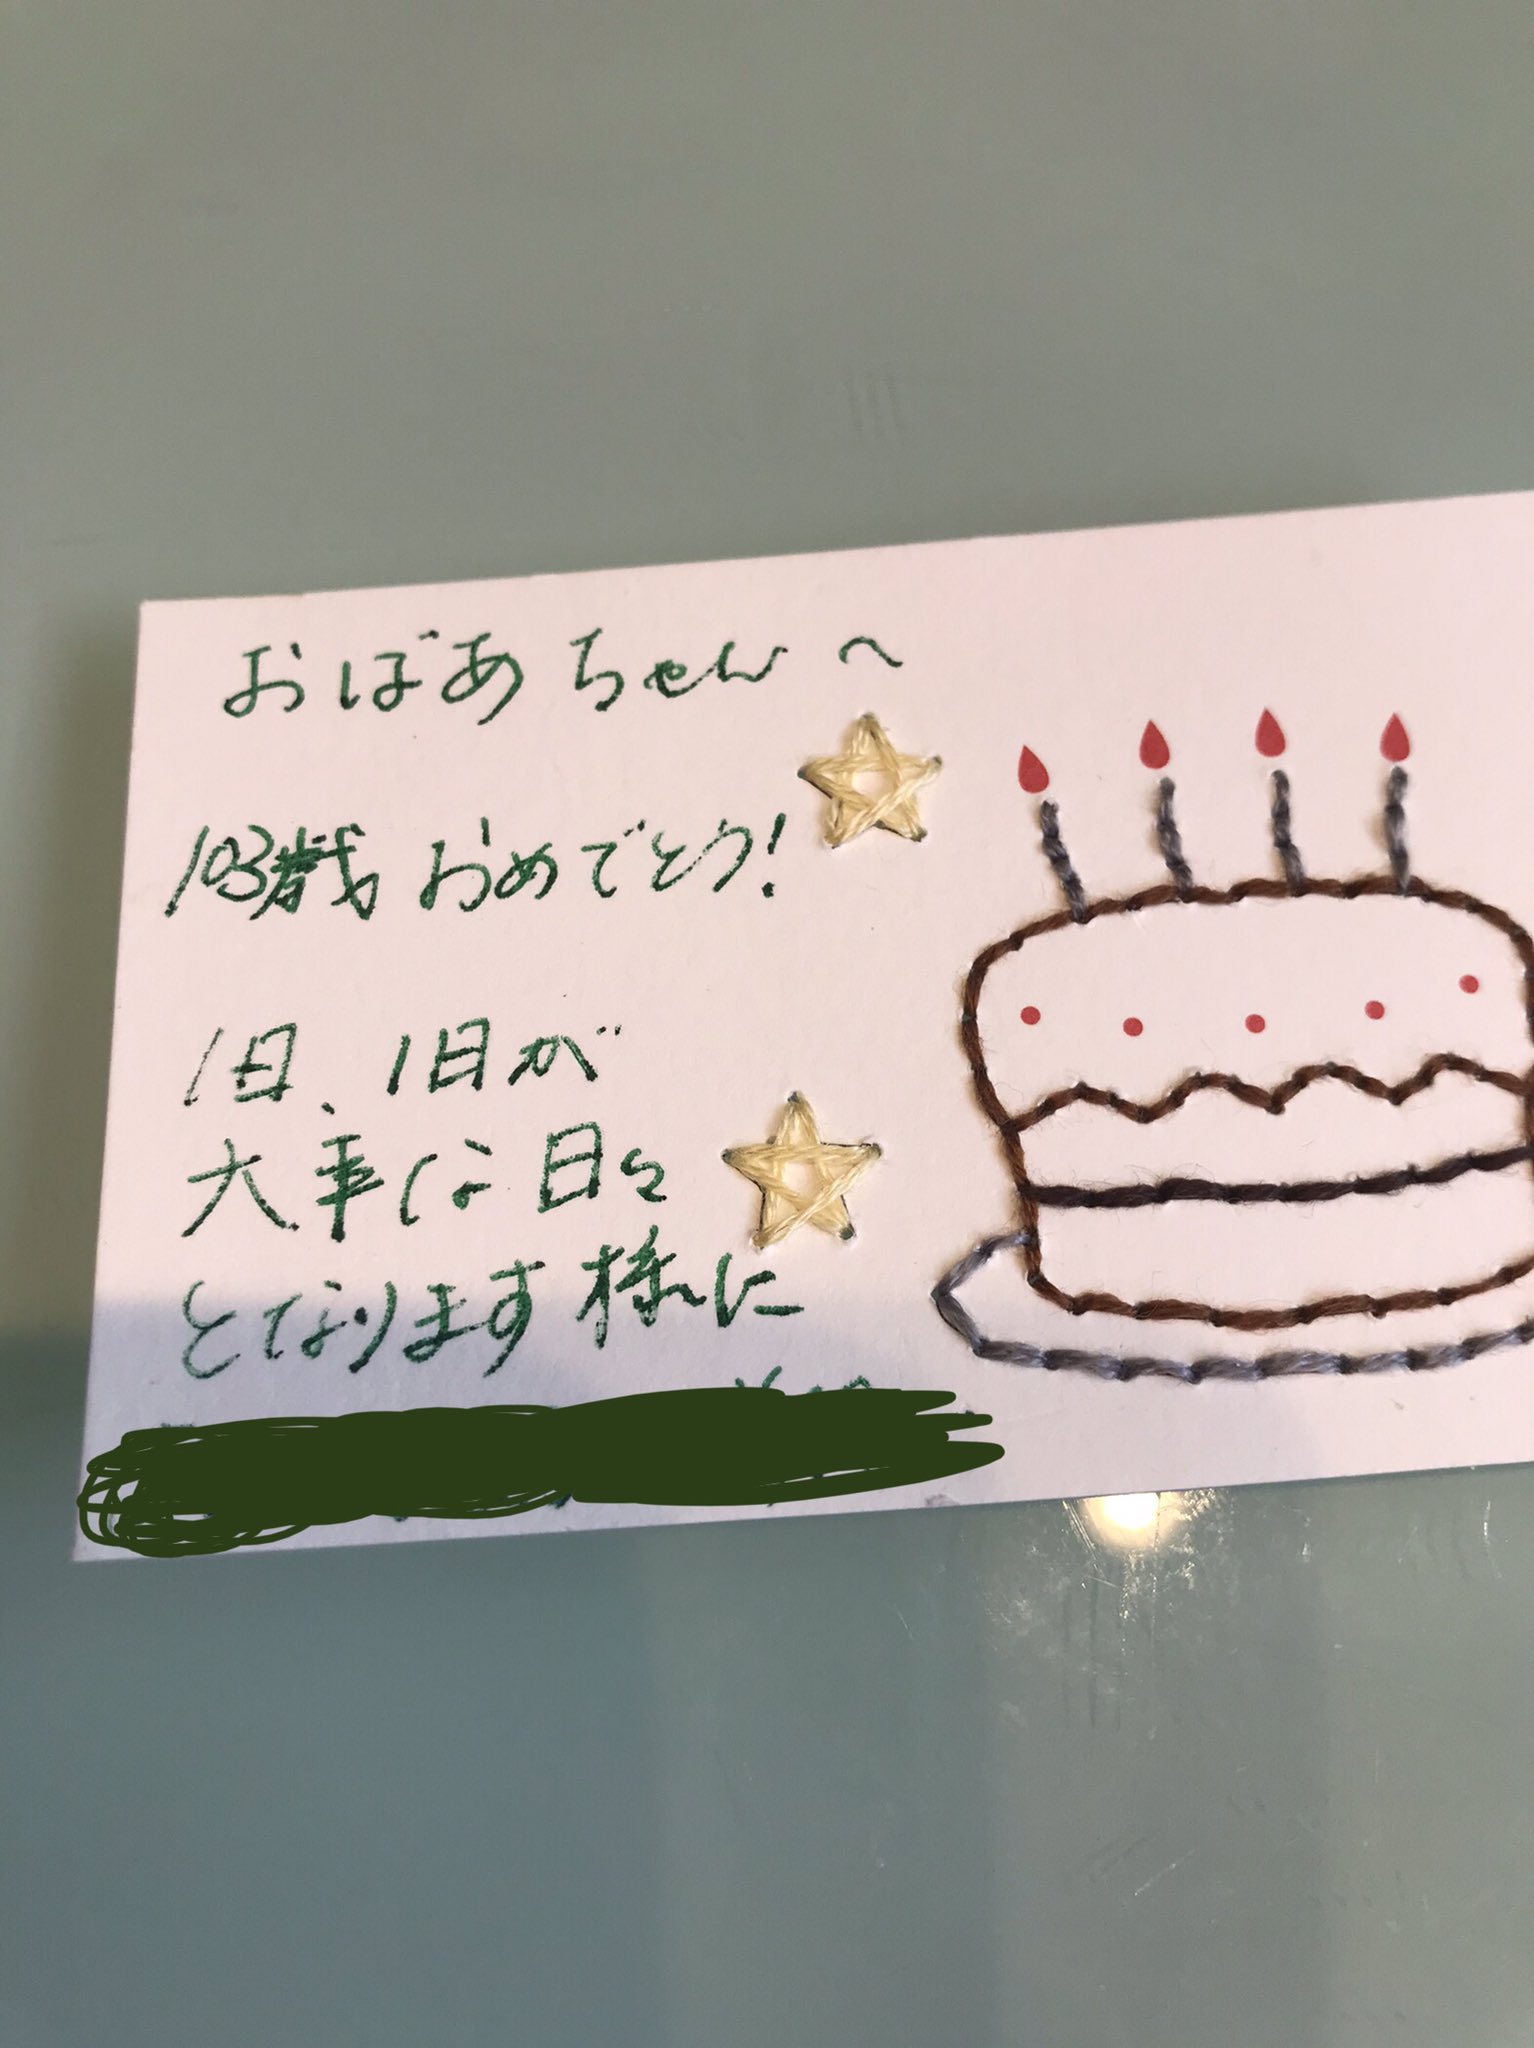 おばあちゃんへ
103歳おめでとう!
1日、1日が
大事な日々
となります様に